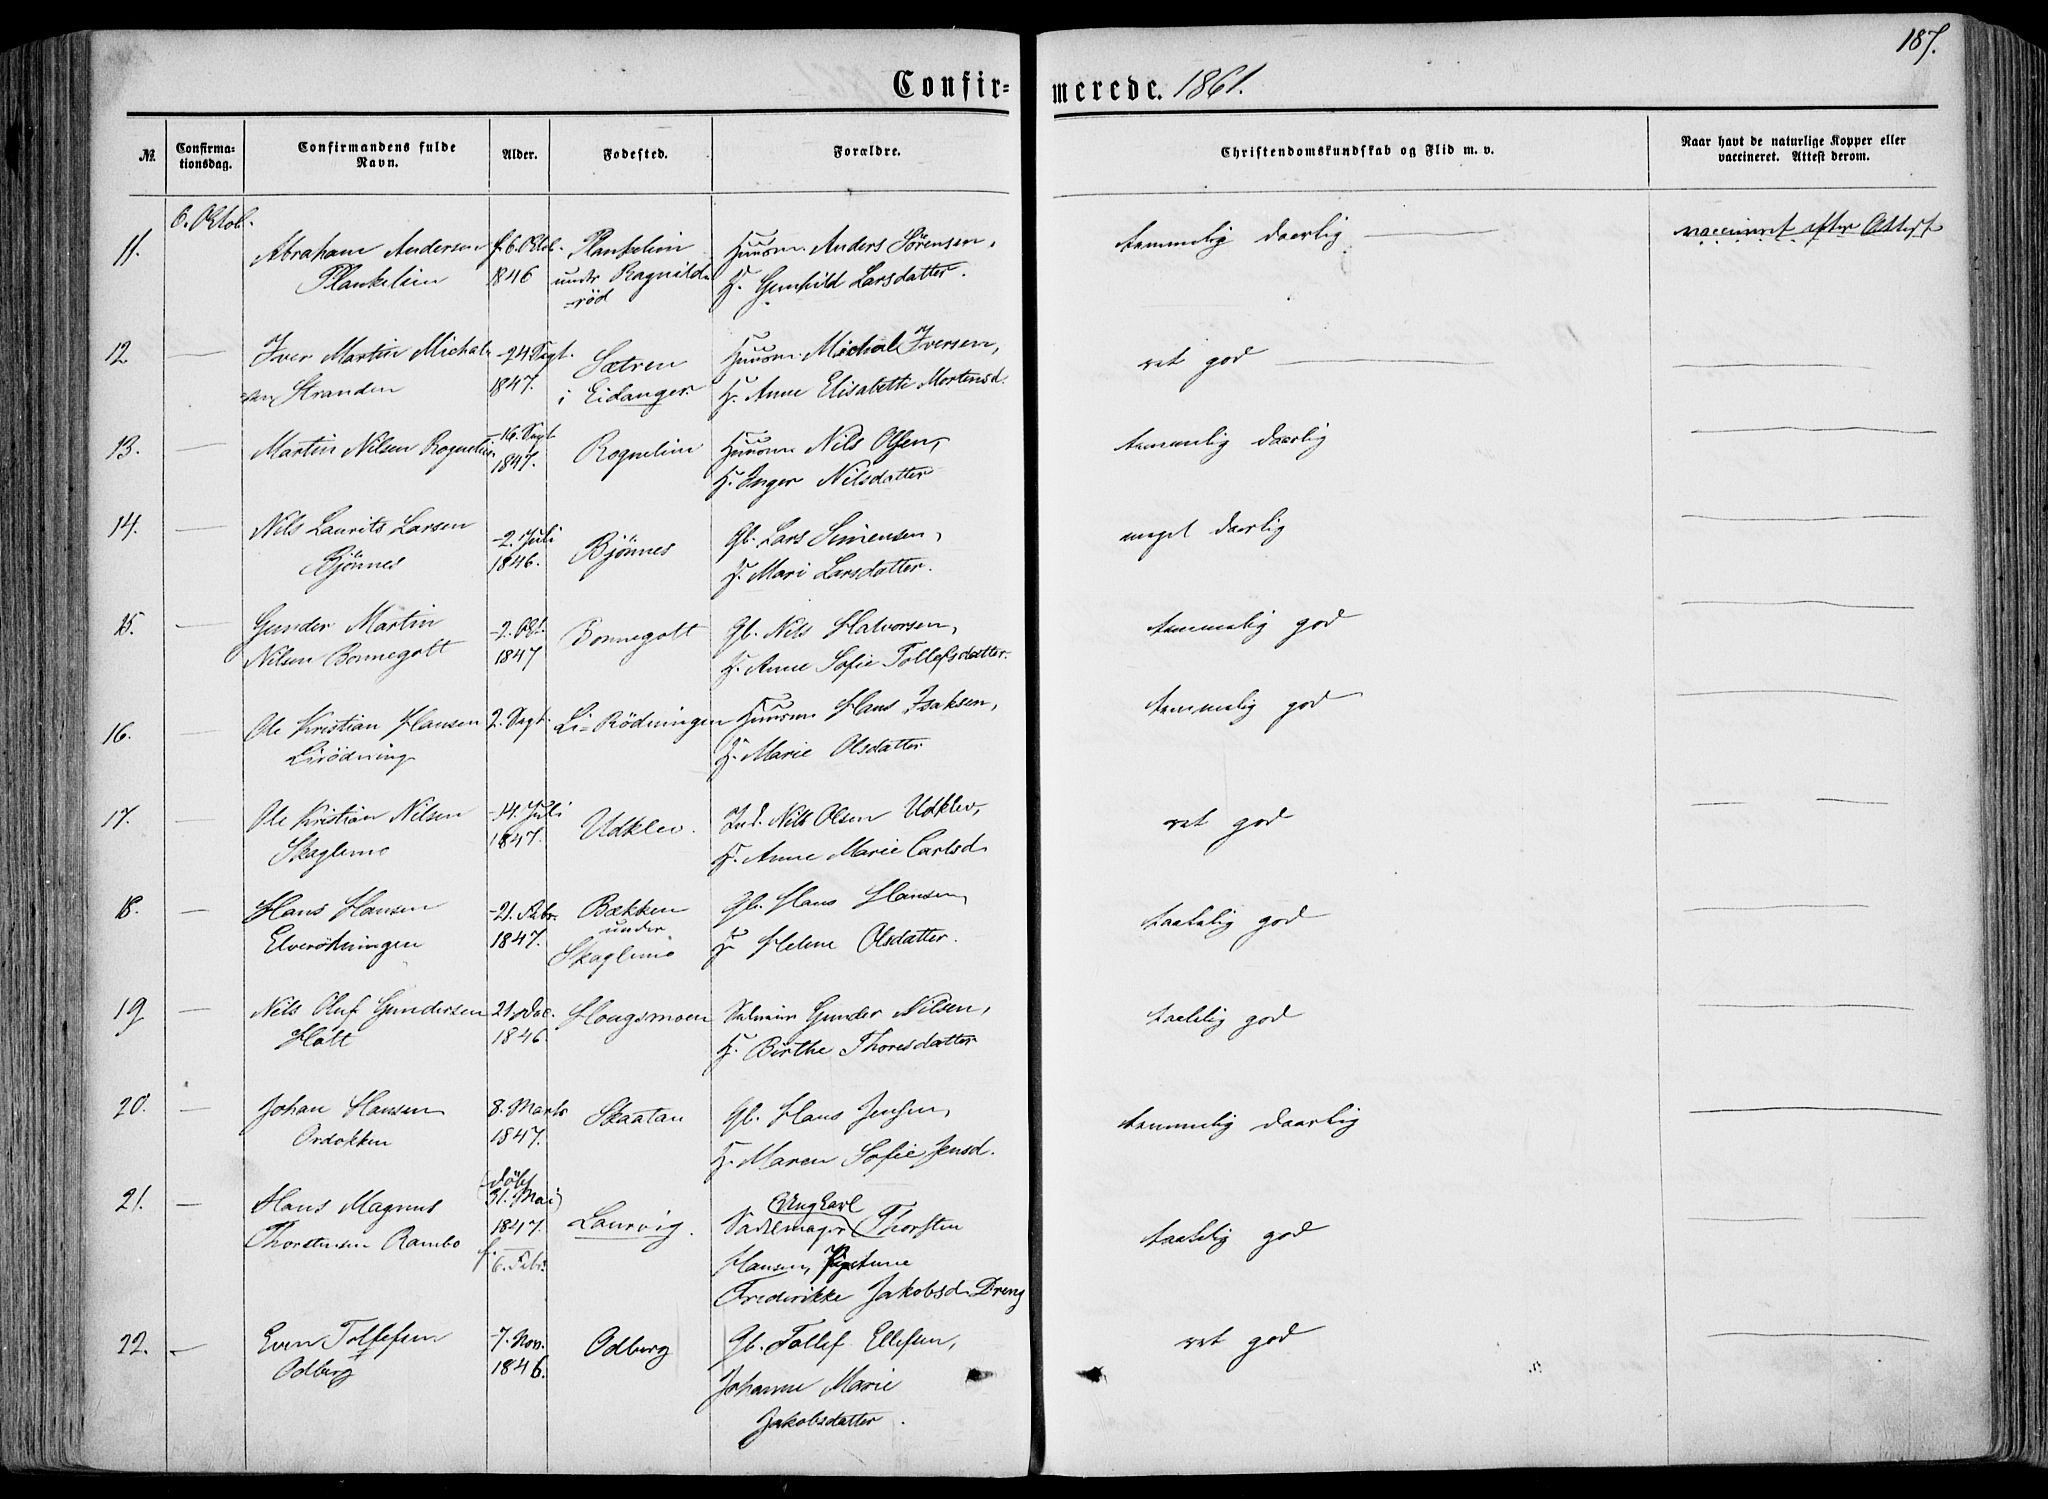 187.
Confir-
merede. 1861.
№.
Confirma-
tionsdag.
Confirmandens fulde
Navn.
Alder.
Fodested.
Forældre.
Christendomskundskab og Flid m. v.
Naar havt de naturlige Kopper eller
vaccineret. Attest derom.
6. Oktol.
11. Abraham Andersen f. 6. Oktol. Plankelien Huusm. Anders Sørensen, temmelig daarlig vaccineret efter Attest
Plankelien 1846 under Ragnilds H. Gunhild Larsdatter.
-rød
12 — Iver Martin Michal- -24 Sept. Sætren Huusm. Michal Iversen, ret god
sen Stranden 1847. i Eidanger. H. Anne Elisabette Mortensd.
13. — Martin Nilsen Rognelien -16. Sept Rognelien Huusm. Nils Olsen, temmelig daarlig
1847. H. Inger Nilsdatter
14. — Nils Laurits Larsen -2. Juli Bjönnes Gb. Lars Simensen, meget daarlig
Bjönnes 1846. H. Mari Larsdatter.
15. — Gunder Martin -2. Okt. Bonnegolt Gb. Nils Halvorsen, temmelig god
Nilsen Bonnegolt 1847 H. Anne Sofie Tollefsdatter.
16. — Ole Kristian Hansen 2. Sept. Li-Rödningen Huusm. Hans Isaksen, temmelig god
Lirödning H. Marie Olsdatter
17. — Ole Kristian Nilsen -14. Juli Udklev. Ind. Nils Olsen Udklev, ret god
Skaglemo 1847. H. Anne Marie Carlsd.
18. — Hans Hansen -21. Febr. Bækken Gb. Hans Hansen, taalelig god
Elverödningen 1847. under H. Helene Olsdatter.
Skaglemo
19 — Nils Oluf Gundersen 21. Dec. Hougsmoen Gunder Nilsen, taalelig god
Holt 1846. H. Birthe Thoresdatter
20. — Johan Hansen 8. Marts Skaatan Gb. Hans Jensen, temmelig daarlig
Ordokken 1847. H. Maren Sofie Jensd.
21. — Hans Magnus (döbt 31. Mai) Laurvig. Ungkarl taalelig god
1847. Sadelmager Thorsten
Thorstensen Rambo f. 6. Febr. Hansen, Pigen
Frederikke Jakobsd. Dreng
22. — Even Tollefsen -7. Nov. Odberg Gb. Tollef Ellefsen, ret god
Odberg 1846. Johanne Marie
Jakobsdatter.